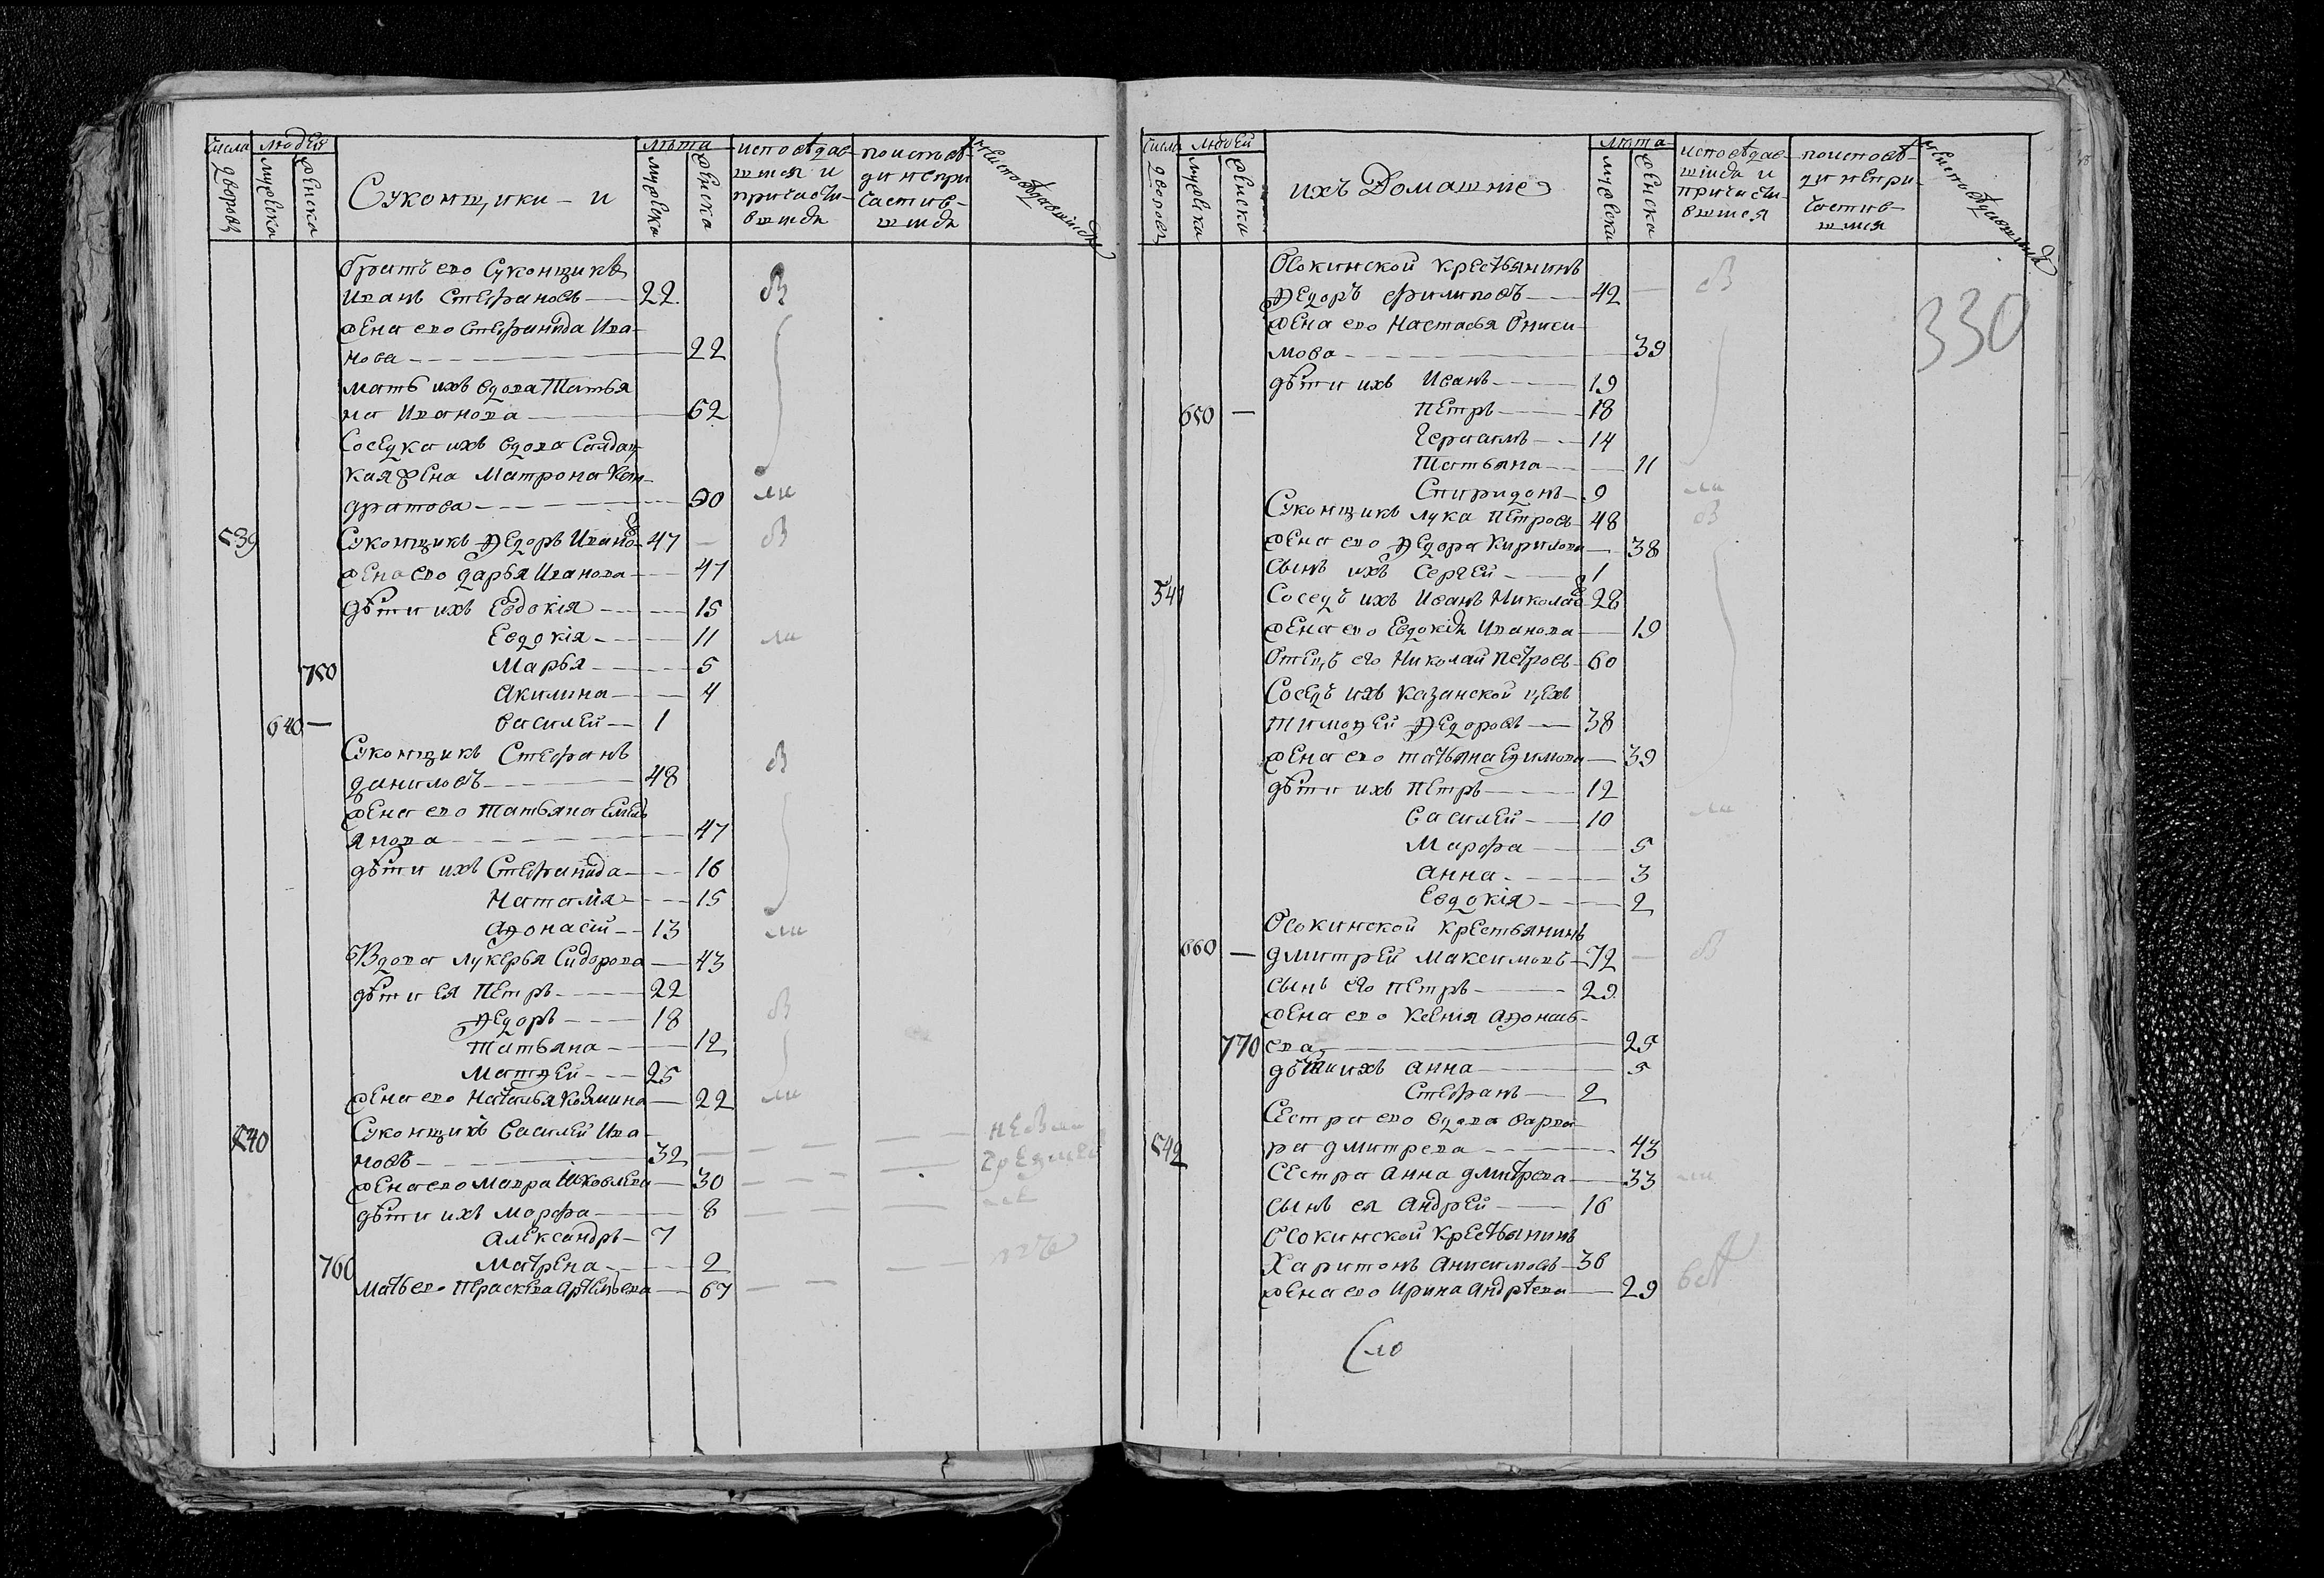 Числа
дворовъ
людей
мужеска
женска
Суконщики - и
лѣта
мужеска
женска
исповѣдав-
шıяся и
причасти-
вшıяся
поисповѣ-
ди непри
частив-
шıяся
неисповѣдавшıяся
братъ его Суконщикъ
Иванъ Стефановъ 22
жена его Стефанида Ива-
нова 22
мать ихъ вдова Татья
на Иванова 62
Соседка ихъ вдова Салдац
кая жена Матрона Кон-
дратова 90
539 Суконщикъ Ѳедоръ Ивановъ 47
жена его дарья Иванова 47
дѣти ихъ Евдокія 15
Евдокія 11
750 Марья 5
акилина 4
640 — василей 1
Суконщикъ Стефанъ
даниловъ 48
жена его Татьяна Емель
янова 47
дѣти ихъ Стефанида 16
Наталія 15
аѳонасій 13
Вдова лукерья Сидорова 43
дѣти ея Петръ 22
Ѳедоръ 18
Татьяна 12
Матѳей 25
жена его Наталья Козмина 22
540 Суконщикъ василей Ива
новъ 32
жена его Мавра Яковлева 30
дѣти ихъ Марфа 8
александръ 7
760 Матрена 2
Мать его Параскева Артемьева 67
Числа
дворовъ
людей
мужеска
женска
ихъ Домашніе
лѣта
мужеска
женска
исповѣдав-
шıяся и
причасти-
вшıяся
поисповѣ-
ди непри-
частив-
шıяся
неисповѣдавшıяся
330
Осокинской крестьянинъ
Ѳедоръ филиповъ 42
жена его Настасья Ониси-
мова 39
дѣти ихъ Иванъ 19
650 — Петръ 18
Герасимъ 14
Татьяна 11
Спиридонъ 9
Суконщикъ лука Петровъ 48
жена его Ѳедора Кирилова 38
сынъ ихъ Сергей 1
541 Соседъ ихъ Иванъ Николаевъ 28
жена его Евдокія Иванова 19
Отецъ его Николай Петровъ 60
Соседъ ихъ казанской цехъ
тимоѳей Ѳедоровъ 38
жена его татьяна Ефимова 39
дѣти ихъ Петръ 12
василей 10
Марфа 5
анна 3
Евдокія 2
Осокинской крестьянинъ
660 — дмитрей максимовъ 72
сынъ его петръ 29
жена его Ксенія аѳонась-
770 ева 25
дѣти ихъ анна 5
Стефанъ 2
Сестра его вдова варва
542 ра дмитрева 43
Сестра анна дмитрева 33
сынъ ея андрей 16
Осокинской крестьянинъ
Харитонъ анисимовъ 36
жена его Ирина андреева 29